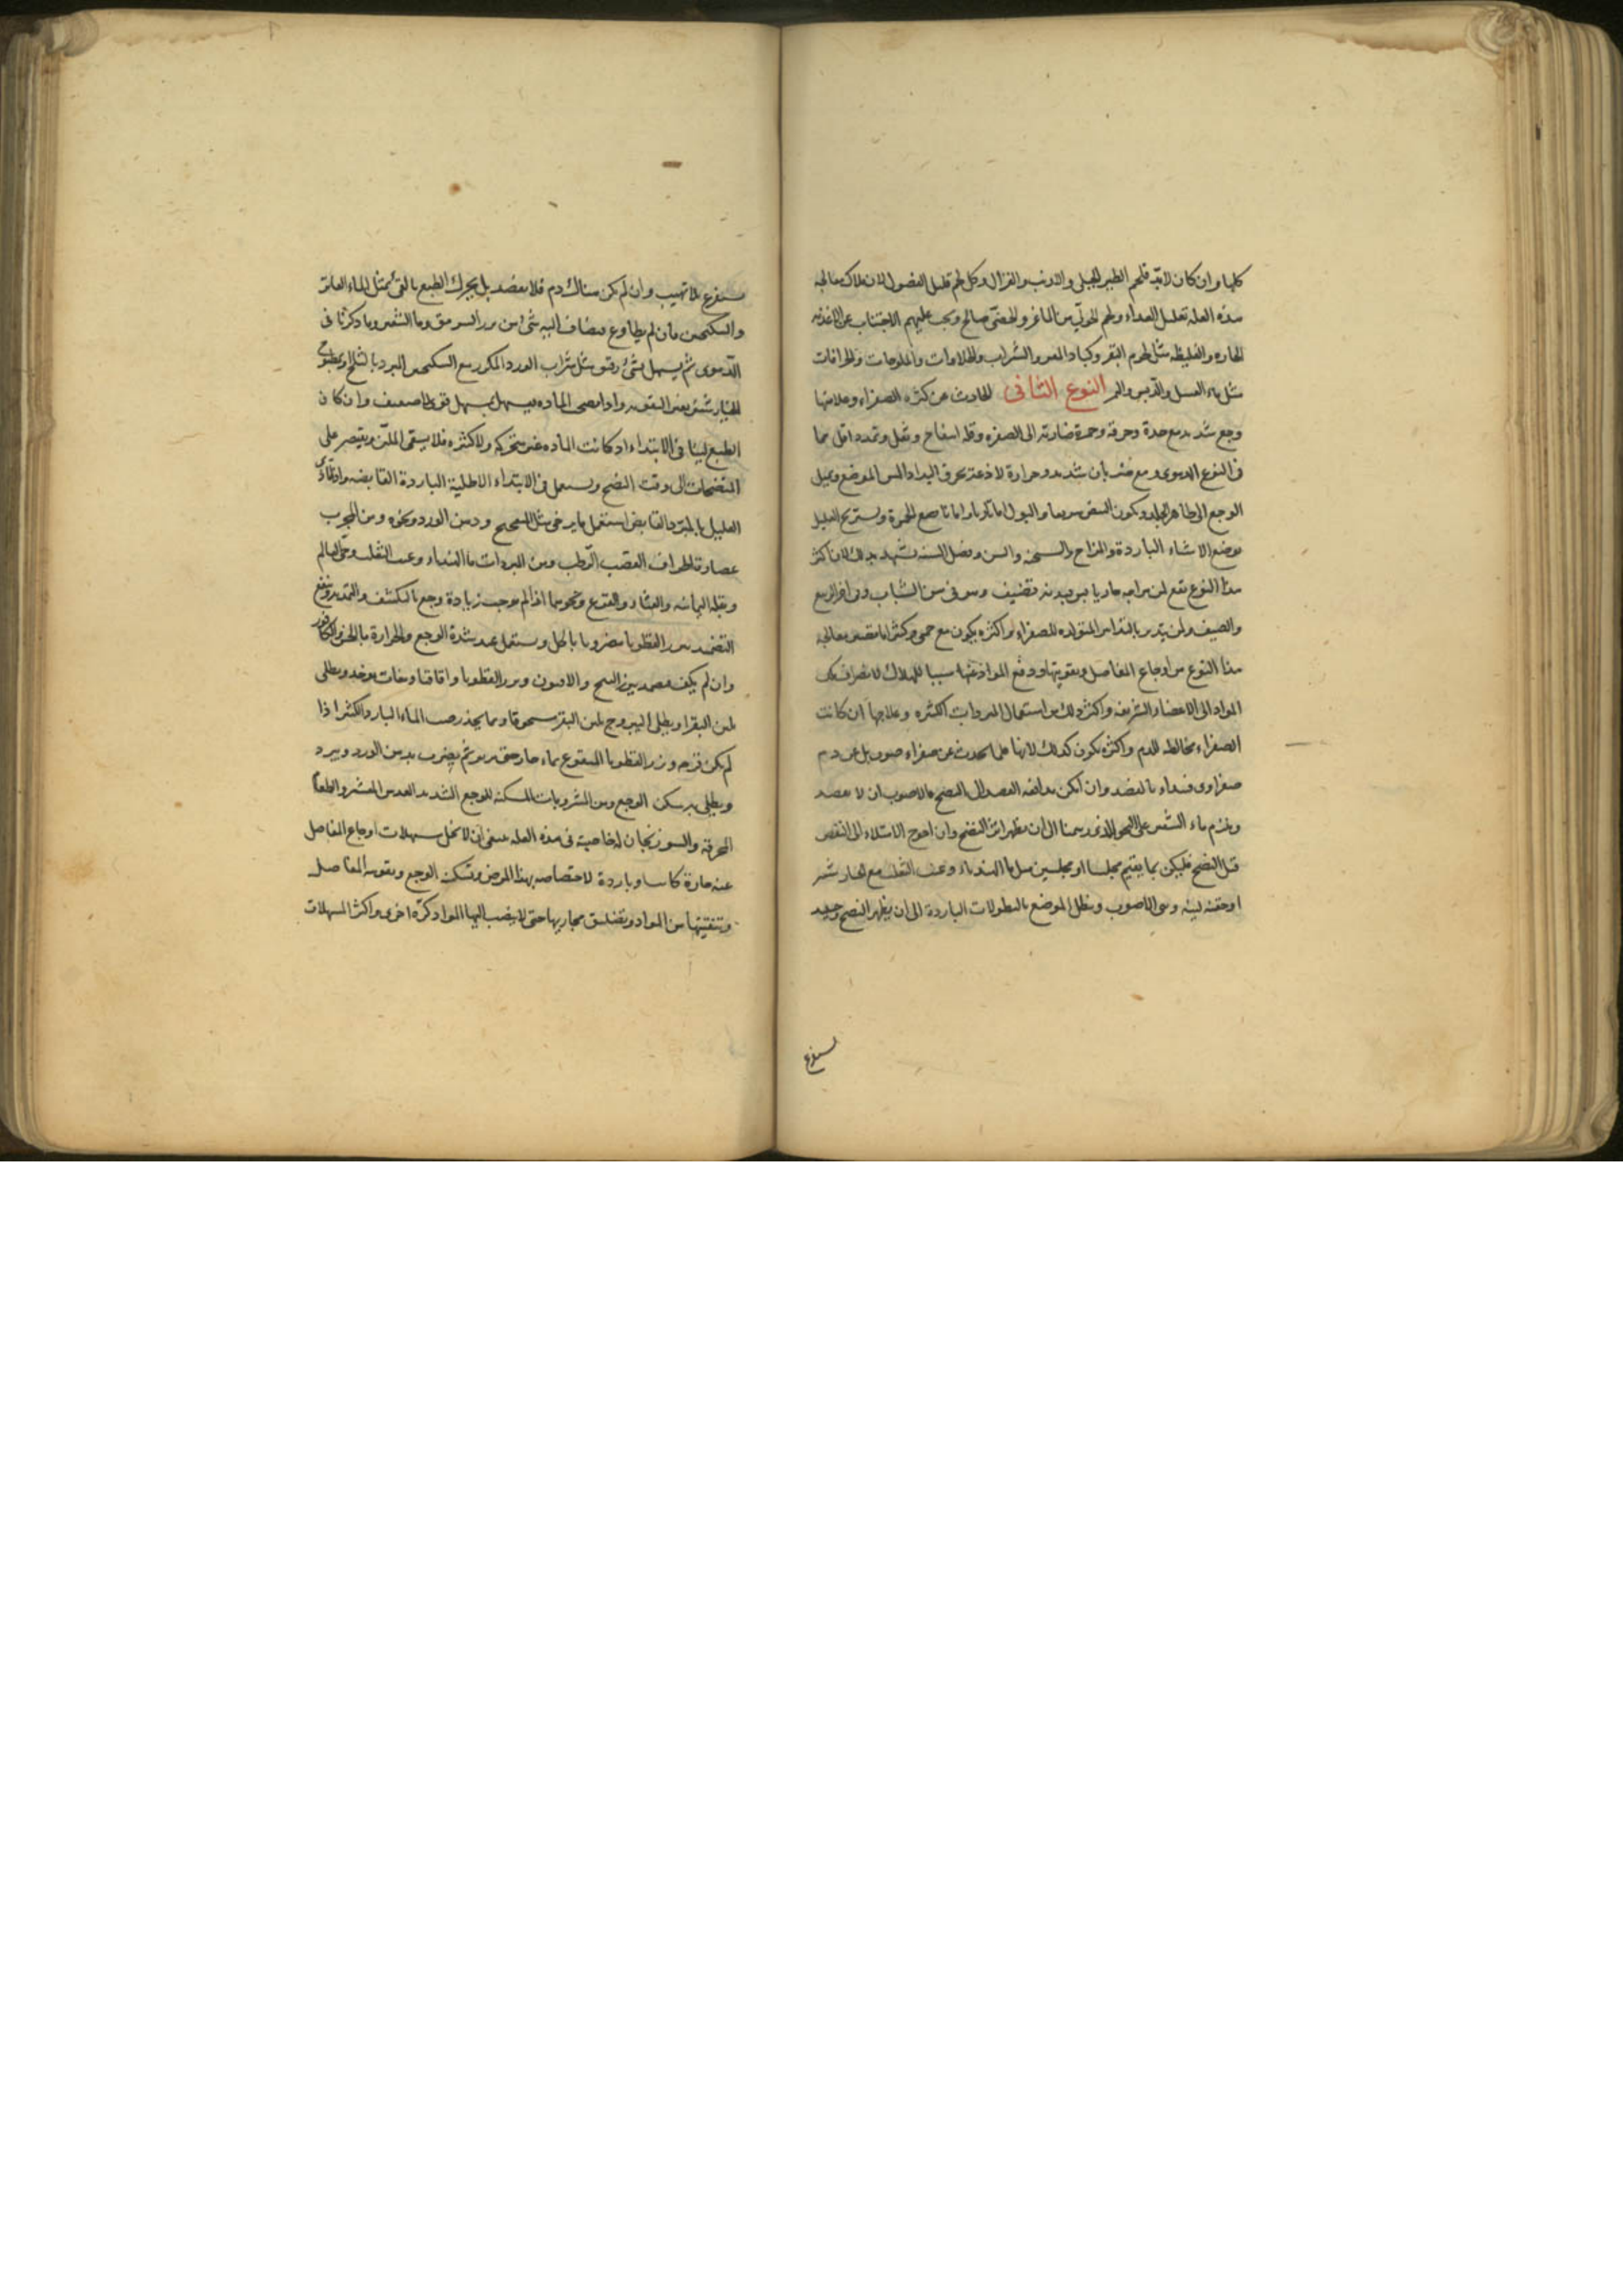 كلها وان كان لابد فلحم الطير الجبلى والارنب والغزال وكل لحم قليل الفضول لان ملاك معالجة
هذه العله تقليل الغداء ولحم الحولى من الماعز والخصى صالح ويجب عليهم الاجتناب عن الاغذيه
الحاره والغليظه مثل لحوم البقر وكباد المعز والشراب والحلاوات والملوحات والحرافات
مثل ماء العسل والدبس والتمر النوع الثانى الحادث عن كثرة الصفراء وعلامتها
وجع شديد مع حدة وحرقه وحمرة ضاربه الى الصفره وقله انتفاخ وثقل وتمدد اقل مما
فى النوع الدموى ومع ضربان شديد وحرارة لاذعة تحرق اليد اذا لمس الموضع ويميل
الوجع الى ظاهر الجلد ويكون النبض سريعا والبول اما ناريا واما ناصع الحمرة ويستريح العليل
بوضع الاشياء الباردة والمزاج والسحنه والسن وفصل السنه تشهد بذلك لان اكثر
هذا النوع يقع لمن مزاجه حار يابس وبدنه قضيف وهو فى سن الشباب وفى اخر الربيع
والصيف ولمن يتدبر بالتدابير المتولده للصفراء واكثره يكون مع حمى وكثيرا ما تصير معالجة
هذا النوع من اوجاع المفاصل وتقويتها ودفع المواد عنها سببا للهلاك لانصراف تلك
المواد الى الاعضاء الشريفه واكثر ذلك من استعمال المبردات الكثيره وعلاجها ان كانت
الصفراء مخالطه للدم واكثره يكون كذلك لانها قلما تحدث عن صفراء صرف بل عن دم
صفراوى فيبداء بالفصد وان امكن مدافعه الفصد الى النضج فالاصوب ان لا يفصد
ويلزم ماء الشعير على النحو الذى رسمنا الى ان يظهر اثر النضج وان احوج الامتلاء الى النقص
قبل النضج فليكن بما يقيم مجلسا او مجلسين مثل ماء الهندباء وعنب الثعلب مع خيار شنبر
او حقنه لينه وهى الاصوب وينطل الموضع بالنطولات الباردة الى ان يظهر النضج وحينئذ
يستفرغ
يستفرغ بلا تهيب وان لم يكن هناك دم فلا يفصد بل يحرك الطبع بالقى بمثل الماء الفاتر
والسكنجبين فان لم يطاوع فيضاف اليه شىء من بزر السرمق وماء الشعير وما ذكرنا فى
الدموى ثم يسهل بشىء رقيق مثل شراب الورد المكرر مع السكنجبين المبرد بالثلج او بمطبوخ
الخيار شنبر بغير التقويه واذا نضجت الماده فيسهل بمسهل قوى لا ضعيف وان كان
الطبع لينا فى الابتداء اذ كانت الماده غير متحركه ولا كثيره فلا يسقى الملين ويقتصر على
المنضجات الى وقت النضج ويستعمل فى الابتداء الاطليه الباردة القابضه واذا تاذى
العليل بالمبرد القابض استعمل ما يرخى مثل الشحم ودهن الورد ونحوه ومن المجرب
عصارة اطراف القصب الرطب ومن المبردات ماء الهندباء وعنب الثعلب وحى العالم
وبقله اليمانيه والقثاء والقرع ونحوهما اذا لم يوجب زيادة وجع بالتكثيف والتمديد وينفع
التضميد ببزر القطونا مضروبا بالخل ويستعمل عند شدة الوجع والحرارة بالخل والكافور
وان لم يكف فيضمد ببزر البنج والافيون وبزر القطونا واقاقيا وماميثا يوخذ ويطلى
بلبن البقر او يطلى اليبروح بلبن البقر مسحوقا ومما يخدر صب الماء البارد الكثير اذا
لم يكن قرحه وبزر القطونا المنقوع بماء حار حتى يربو ثم يضرب بدهن الورد ويبرد
ويطلى به يسكن الوجع ومن المشروبات المسكنه للوجع الشديد العدس المقشر والطفا
المحرقه والسورنجان له خاصية فى هذه العله ينبغى ان لا يخلى مسهلات اوجاع المفاصل
عنه حارة كانت او باردة لاختصاصه بهذا المرض وتسكين الوجع وتقويه المفاصل
وتنقيتها من المواد وتضييق مجاريها حتى لا ينصب اليها المواد كرة اخرى واكثر المسهلات